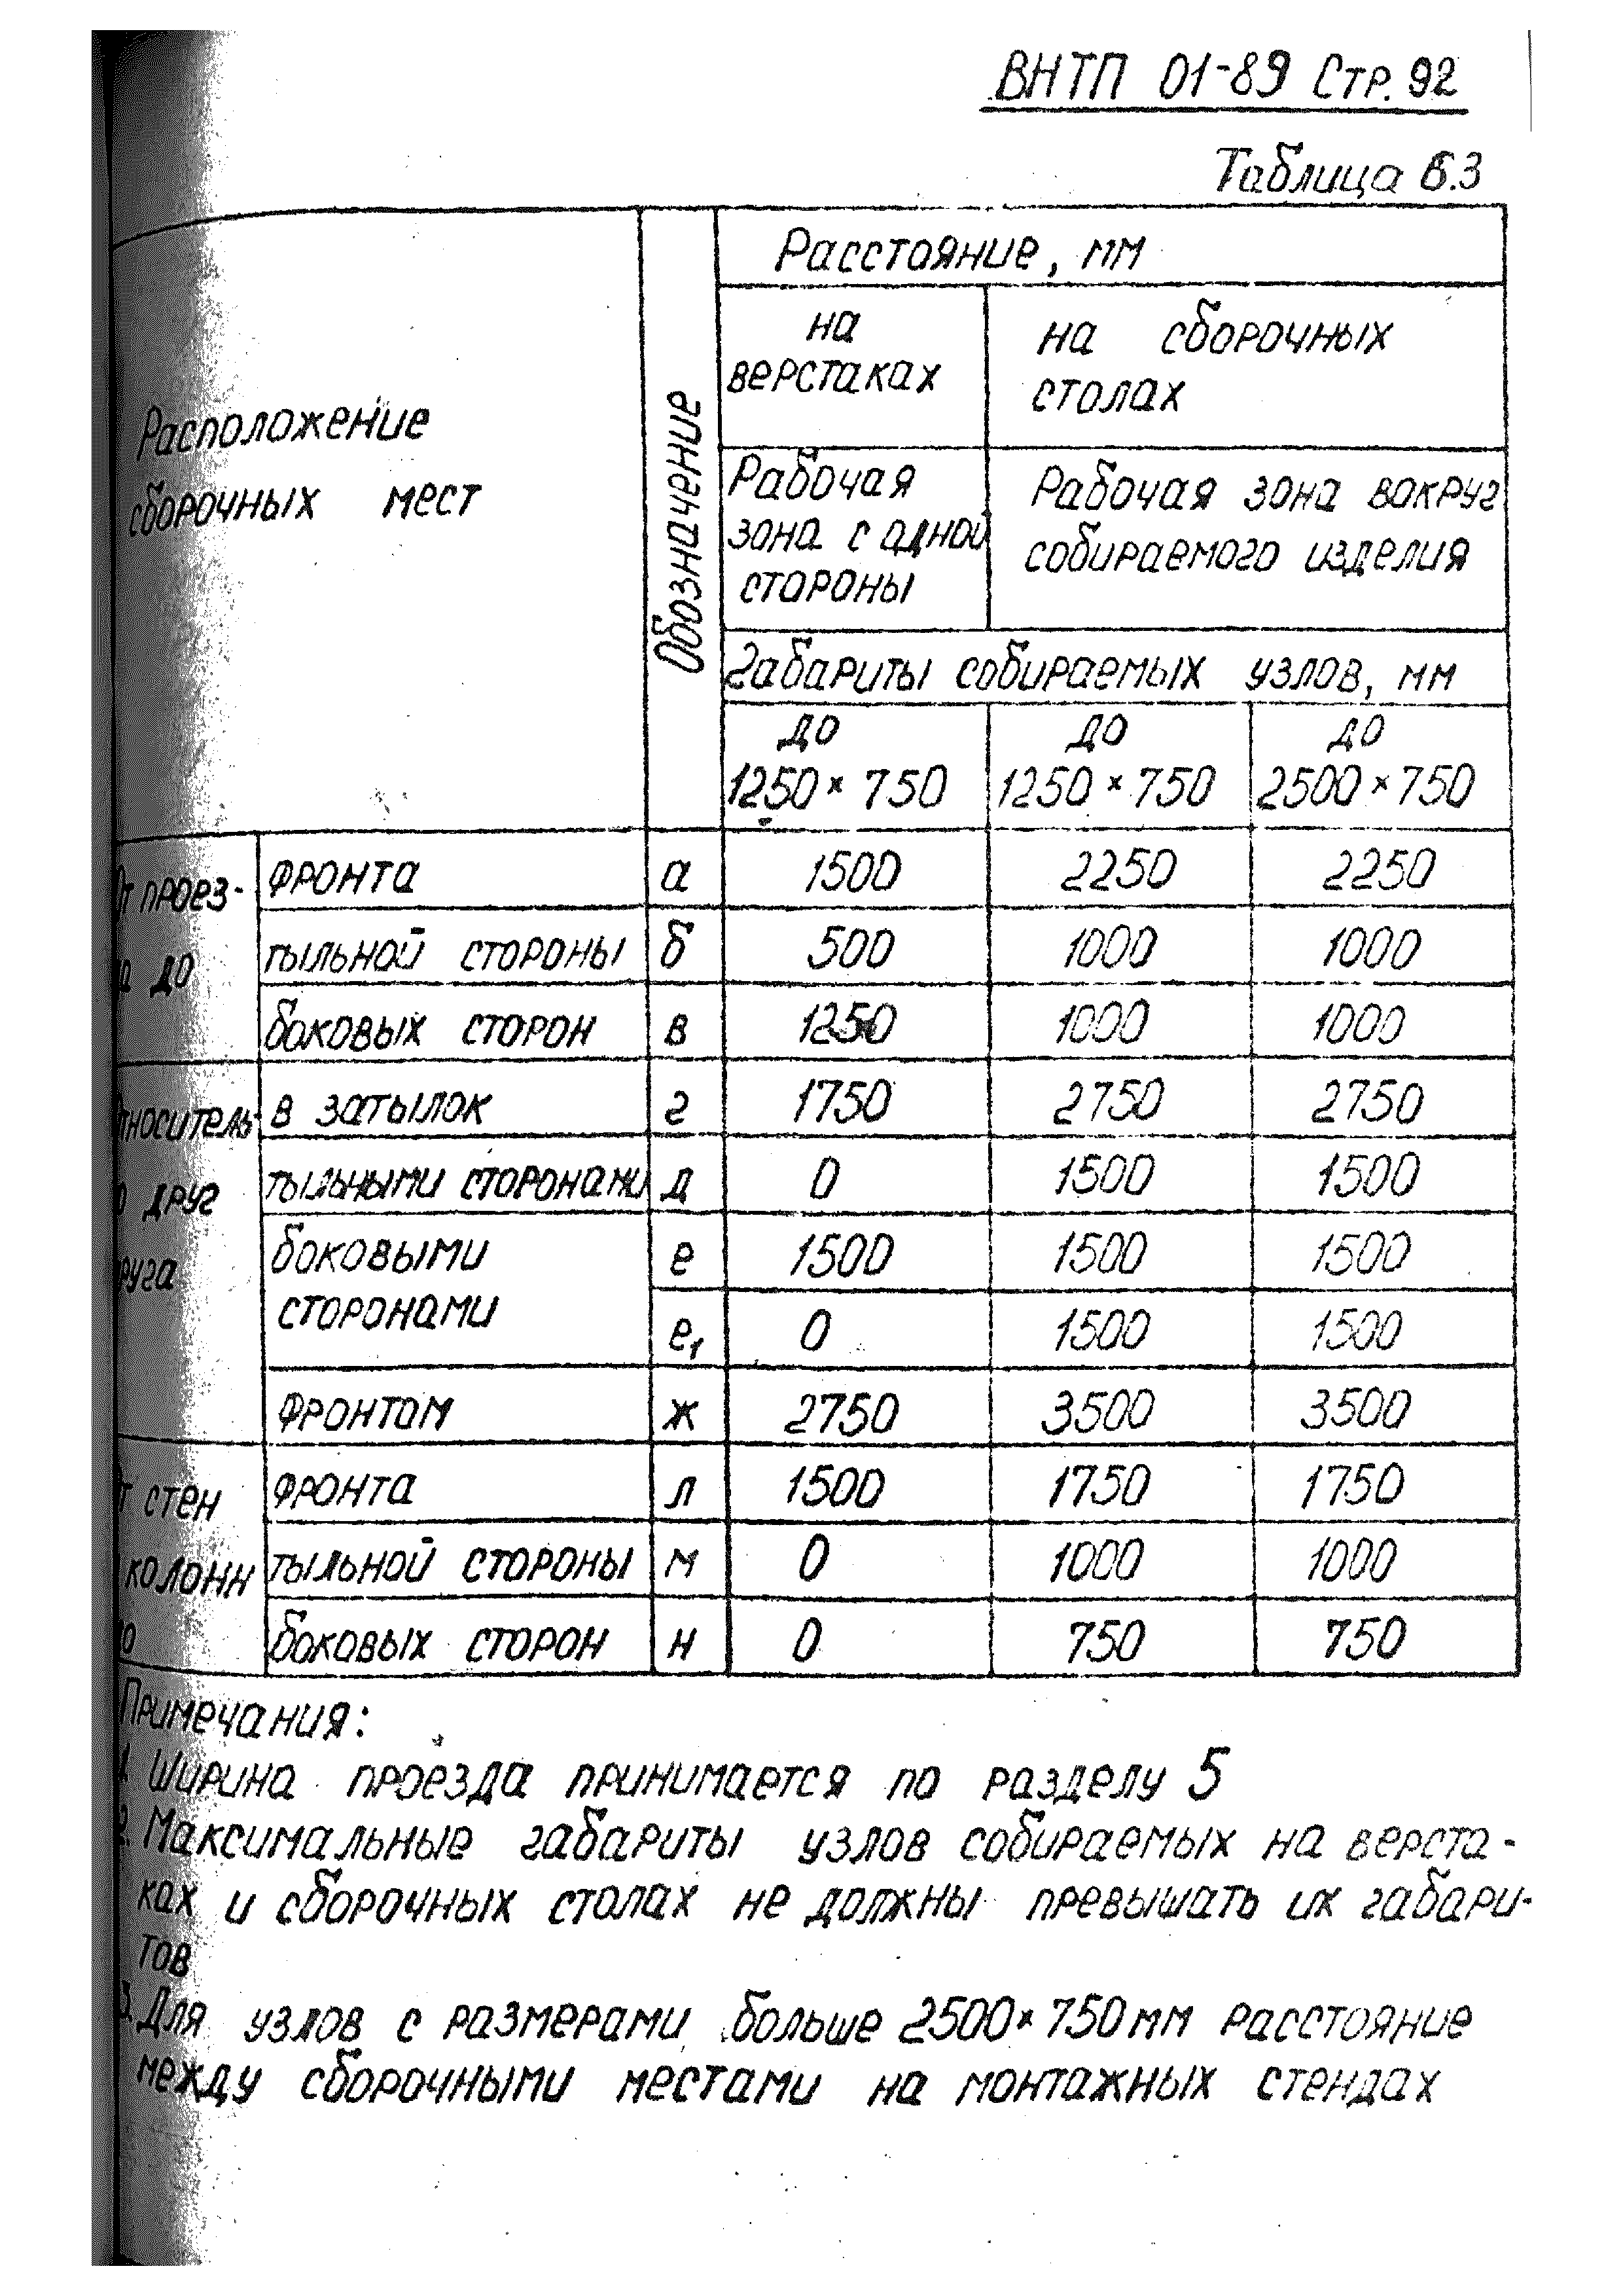 ВНТП 01-89 Стр. 92
Таблица 6.3
Расположение
сборочных мест
Обозначение
Расстояние, мм
на
верстаках
на сборочных
столах
Рабочая
зона с одной
стороны
Рабочая зона вокруг
собираемого изделия
Габариты собираемых узлов, мм
до
1250 × 750
до
1250 × 750
до
2500 × 750
От проез-
да до
фронта а 1500 2250 2250
тыльной стороны б 500 1000 1000
боковых сторон в 1250 1000 1000
относитель-
но друг
друга
в затылок г 1750 2750 2750
тыльными сторонами д 0 1500 1500
боковыми
сторонами
е 1500 1500 1500
е₁ 0 1500 1500
фронтом ж 2750 3500 3500
От стен
колонн
до
фронта л 1500 1750 1750
тыльной стороны м 0 1000 1000
боковых сторон н 0 750 750
Примечания:
1. Ширина проезда принимается по разделу 5
2. Максимальные габариты узлов собираемых на верста-
ках и сборочных столах не должны превышать их габари-
тов
3. Для узлов с размерами больше 2500 × 750 мм расстояние
между сборочными местами на монтажных стендах